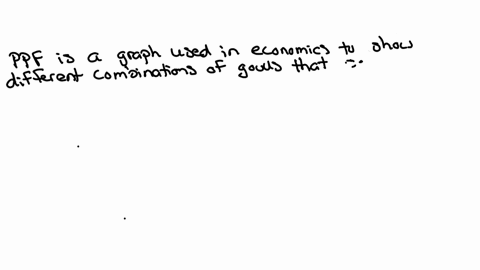 PPF is a graph used in economics to show
different combinations of goods that